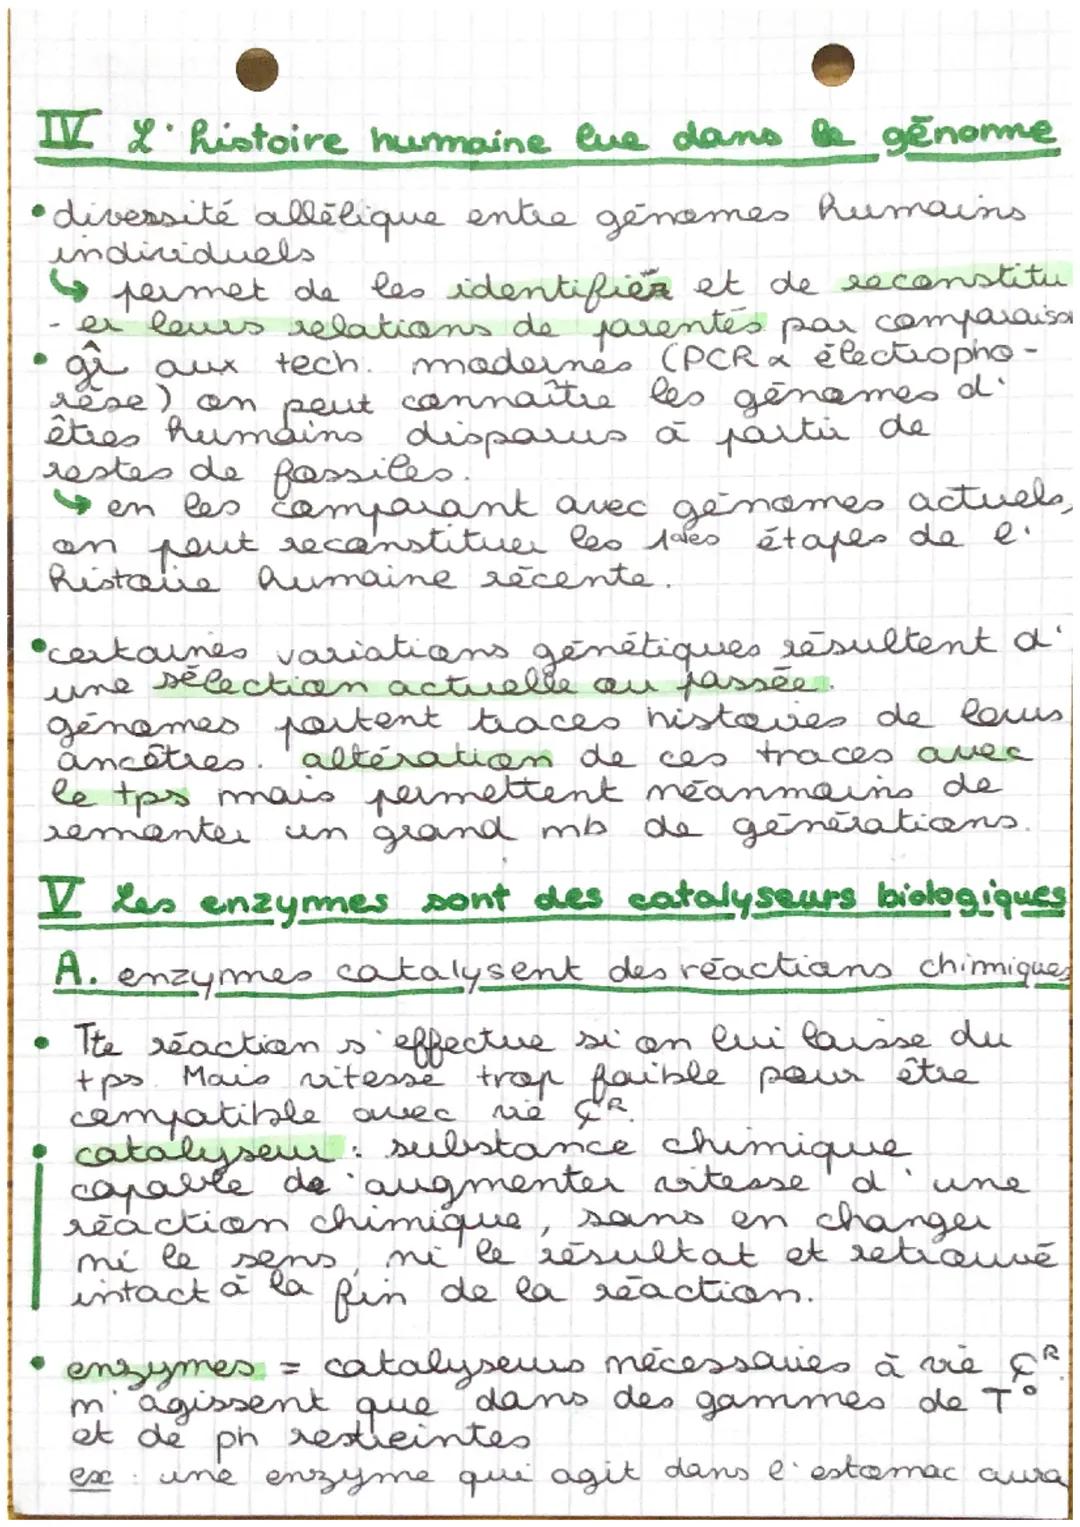 IV L'histoire humaine lue dans le génome
• diversité allélique entre génomes humains
individuels
↳ permet de les identifier et de reconstitu
- er leurs relations de parentés par comparaison
• gî aux tech. modernes (PCR & électropho-
rèse) on peut connaître les génomes d'
êtres humains disparus à partir de
restes de fossiles.
↳ en les comparant avec génomes actuels,
on peut reconstituer les 1ères étapes de l'
histoire humaine récente.
• certaines variations génétiques résultent d'
une sélection actuelle ou passée.
génomes portent traces histoires de leurs
ancêtres. altération de ces traces avec
le tps mais permettent néanmoins de
remonter un grand nb de générations.
V Les enzymes sont des catalyseurs biologiques
A. enzymes catalysent des réactions chimiques
• Tte réaction s'effectue si on lui laisse du
tps. Mais vitesse trop faible pour être
compatible avec vie ȼR.
• catalyseur : substance chimique
capable de augmenter vitesse d'une
réaction chimique, sans en changer
ni le sens, ni le résultat et retrouvé
intact à la fin de la réaction.
• enzymes = catalyseurs nécessaires à vie ȼR.
n'agissent que dans des gammes de T°
et de ph restreintes
ex : une enzyme qui agit dans l'estomac aura